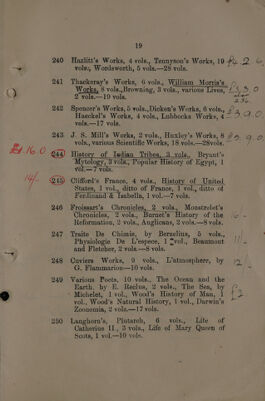 19
240 Hazlitt's Works, 4 vols., Tennyson's Works, 10
vols., Wordsworth, 5 vols.—28 vols.
241 Thackeray's Works, 6 vols., William Morris's
Works, 8 vols., Browning, 3 vols., various Lives,
2 vols.—19 vols.
242 Spencer's Works, 5 vols., Dicken's Works, 6 vols.,
Haeckel's Works, 4 vols., Lubbocks Works,
4 vols.—17 vols.
243 J. S. Mill's Works, 2 vols., Huxley's Works, 8
vols., various Scientific Works, 18 vols.—28vols.
£1.16.0
244 History of Indian Tribes, 3 vols., Bryant's
Mytology, 3 vols., Popular History of Egypt, 1
vol.—7 vols.
14/-
245 Clifford's France, 4 vols., History of United
States, 1 vol., ditto of France, 1 vol., ditto of
Ferdinand & Isabella, 1 vol.—7 vols.
246 Froissart's Chronicles, 2 vols., Monstrelet's
Chronicles, 2 vols., Burnet's History of the
Reformation, 2 vols., Anglicans, 2 vols.—8 vols.
247 Traite De Chimie, by Berzelius, 5 vols.,
Physiologie De L'espece, 1 vol., Beaumont
and Fletcher, 2 vols.—8 vols.
248 Cuviers Works, 9 vols., L'atmosphere, by
G. Flammarion—10 vols.
249 Various Poets, 10 vols., The Ocean and the
Earth, by E. Reclus, 2 vols., The Sea, by
Michelet, 1 vol., Wood's History of Man, 1
vol., Wood's Natural History, 1 vol., Darwin's
Zoonomia, 2 vols.—17 vols.
250 Langhorn's, Plutarch, 6 vols., Life of
Catherine II., 3 vols., Life of Mary Queen of
Scots, 1 vol.—10 vols.